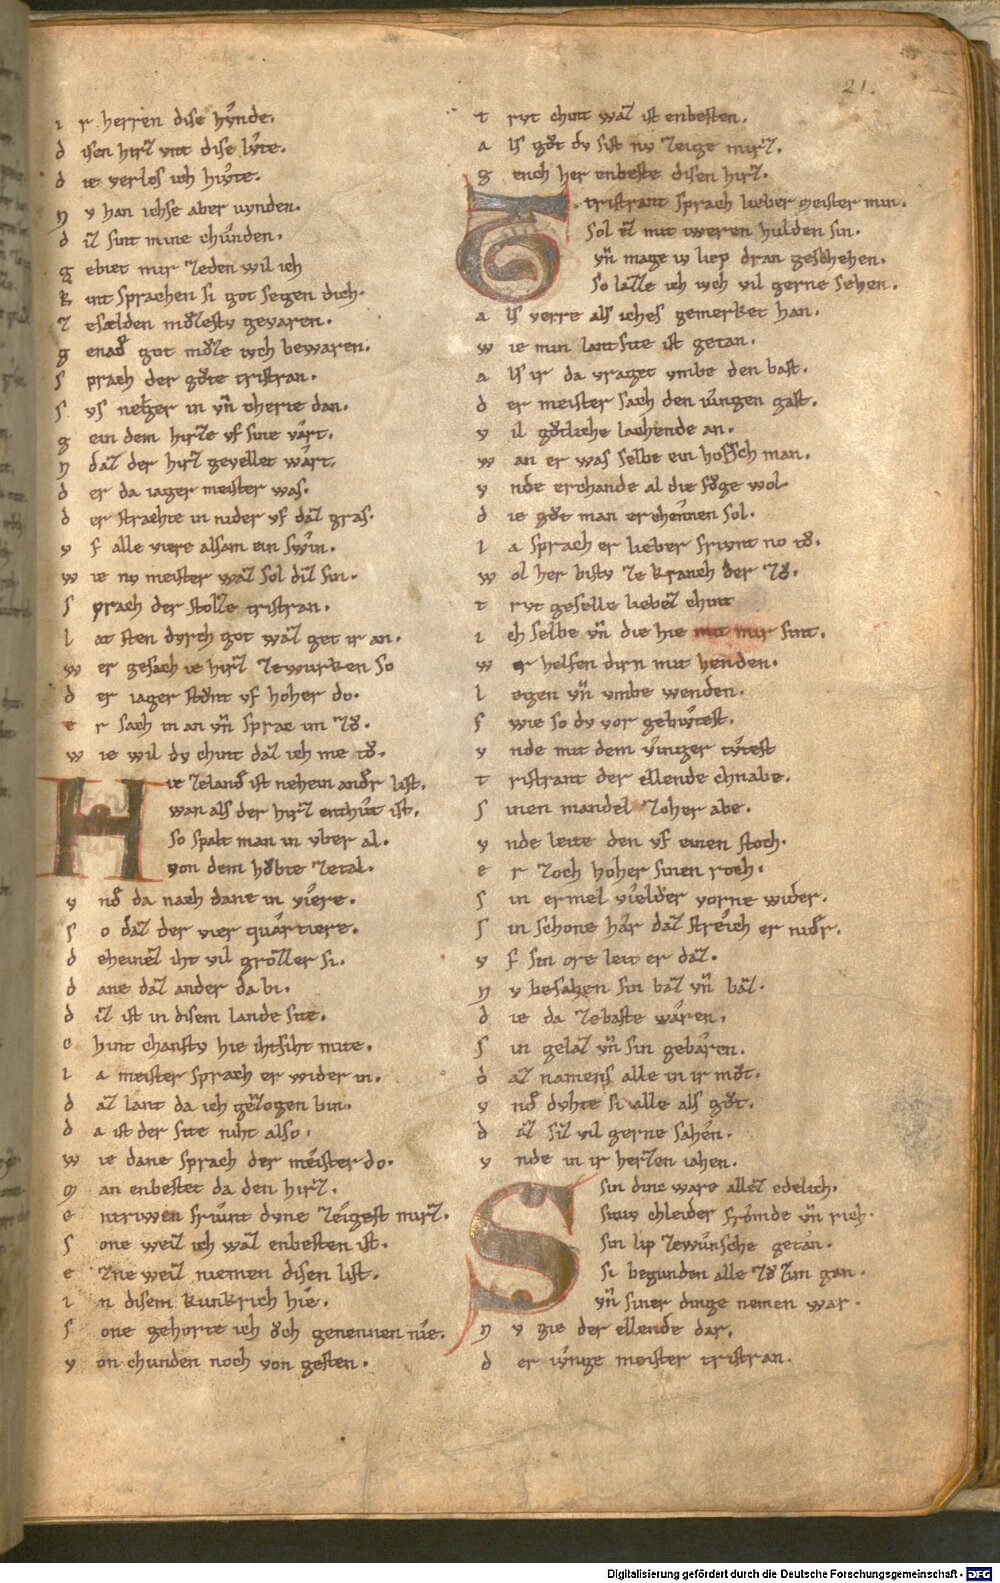 21.
i r herren dise hvͤnde.
d isen hirz vnt dise lvͤte.
d ie verlos ich hivͤte.
n v han ichse aber uvnden.
d iz sint mine chuͤnden.
g ebiet mir zeden wil ich
k int sprachen si got segen dich.
z esælden moͤzestv gevaren.
g enad got moͤze ivch bewaren.
s prach der gvͦte tristran.
s vs neiger in vn̄ cherte dan.
g ein dem hirze vf sine vart.
n daz der hirz gevellet wart.
d er da iager meister was.
d er strachte in nider vf daz gras.
v f alle viere alsam ein swin.
w ie nv meister waz sol diz sin.
s prach der stolze tristran.
l at sten dvrch got waz get ir an.
w er gesach ie hirz zewurken so
d er iager stvͦnt vf hoher do.
e r sach in an vn̄ sprac im zvͦ.
w ie wil dv chint daz ich me tvͦ.
H ie zeland ist nehein andr list.
wan als der hirz enthvͤt ist.
so spalt man in vber al.
von dem hoͮbte zetal.
v nd da nach dane in viere.
s o daz der vier quartiere.
d eheinez iht vil grozzer si.
d ane daz ander da bi.
d iz ist in disem lande site.
o hint chanstv hie ihtsiht mite.
i a meister sprach er wider in.
d az lant da ich gezogen bin.
d a ist der site niht also.
w ie dane sprach der meister do.
m an enbestet da den hirz.
e ntriwen friunt dvne zeigest mirz.
s one weiz ich waz enbesten ist.
e zne weiz niemen disen list.
i n disem kunkrich hie.
s one gehorte ich oͮch genennen nie.
v on chunden noch von gesten.
t rvt chint waz ist enbesten.
a ls gvͦt dv sist nv zeige mirz.
g ench her enbeste disen hirz.
T ristrant sprach lieber meister min.
sol ez mit iweren hulden sin.
vn̄ mage iv liep dran geschehen.
so lazze ich ivch vil gerne sehen.
a ls verre als iches gemerket han.
w ie min lantsite ist getan.
a ls ir da vraget vmbe den bast.
d er meister sach den iungen gast.
v il gvͦtliche lachende an.
w an er was selbe ein hoffsch man.
v nde erchande al die fvͦge wol
d ie gvͦt man erchennen sol.
i a sprach er lieber frivnt nv tvͦ.
w ol her bistv ze kranch der zvͦ.
t rvt geselle liebez chint
i ch selbe vn̄ die hie mit mir sint.
w er helfen dirn mit henden.
l egen vn̄ vmbe wenden.
s wie so dv vor gebivtest.
v nde mit dem vinger tvͤtest
t ristrant der ellende chnabe.
s inen mandel zoher abe.
v nde leite den vf einen stoch.
e r zoch hoher sinen roch.
s in ermel vielder vorne wider.
s in schone har daz streich er nidr.
v f sin ore leit er daz.
n v besahen sin baz vn̄ baz.
d ie da zebaste waren.
s in gelaz vn̄ sin gebaren.
d az namens alle in ir mvͦt.
v nd dvhte si alle als gvͦt.
d az siz vil gerne sahen.
v nde in ir herzen iahen.
S in dinc ware allez edelich.
siniv chleider fromde vn̄ rich.
sin lip zewunsche getan.
si begunden alle zvͦ zim gan.
vn̄ siner dinge nemen war.
n v gie der ellende dar.
d er ivnge meister tristran.
Digitalisierung gefördert durch die Deutsche Forschungsgemeinschaft - DFG